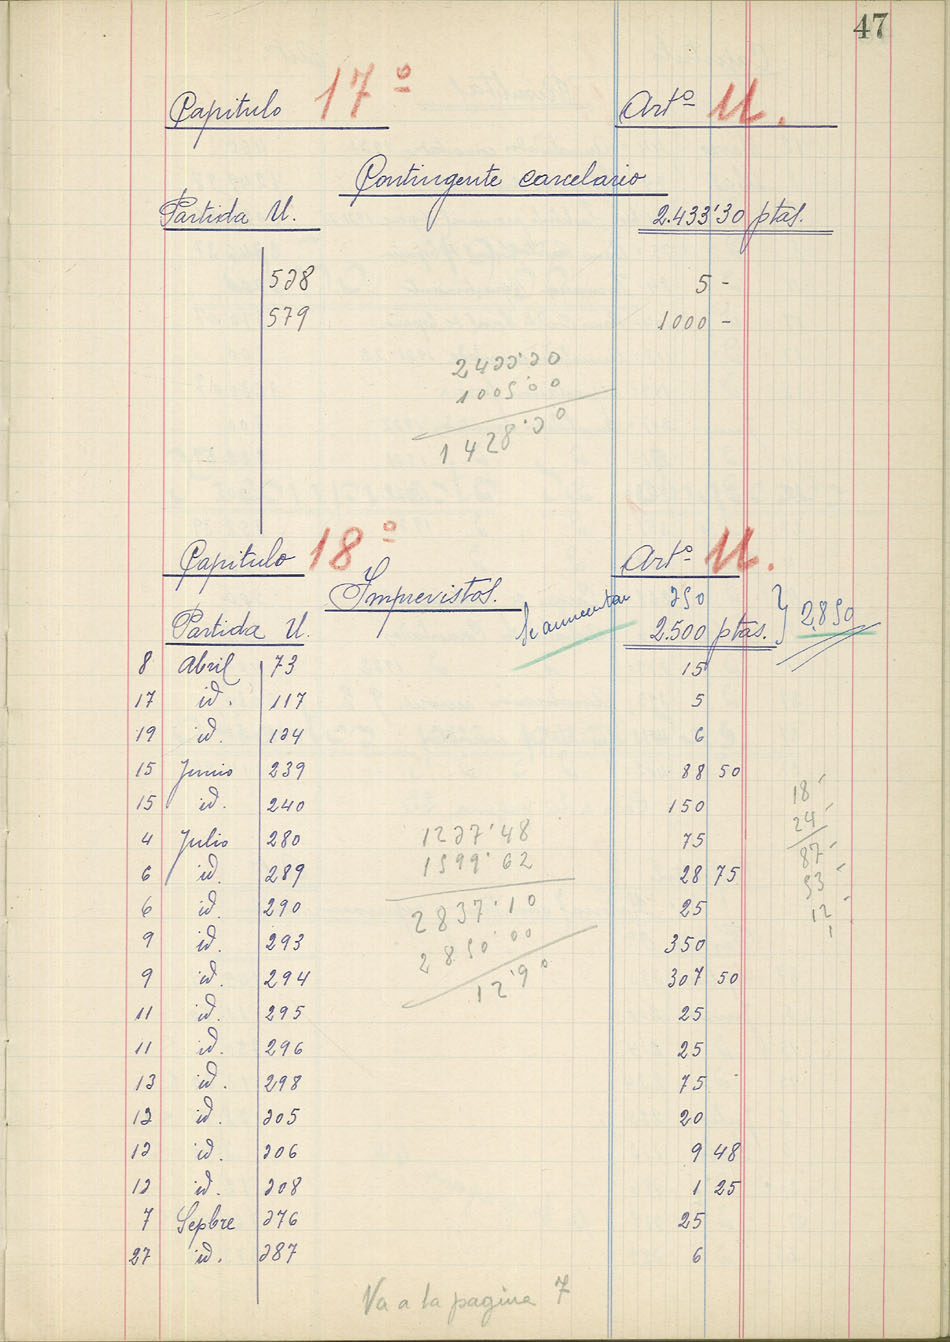 47
Capitulo 17º Artº U.
Contingente carcelario
Partida U. 2.433'30 ptas.
538 5 -
579 1000 -
2433'30
1005'00
1428'30
Capitulo 18º Artº U.
Imprevistos. Se aumentan 350
Partida U. 2.500 ptas. } 2,850
8 Abril 73 15
17 id. 117 5
19 id. 134 6
15 Junio 239 88 50
15 id. 240 150
18
24
4 Julio 280 75
1237'48
87
6 id. 289 28 75
1599'62
53
6 id. 290 25
2837'10
12
1
9 id. 293 350
2850'00
9 id. 294 307 50
12'90
11 id. 295 25
11 id. 296 25
13 id. 298 75
13 id. 305 20
13 id. 306 9 48
13 id. 308 1 25
7 Sepbre 376 25
27 id. 387 6
Va a la pagina 7